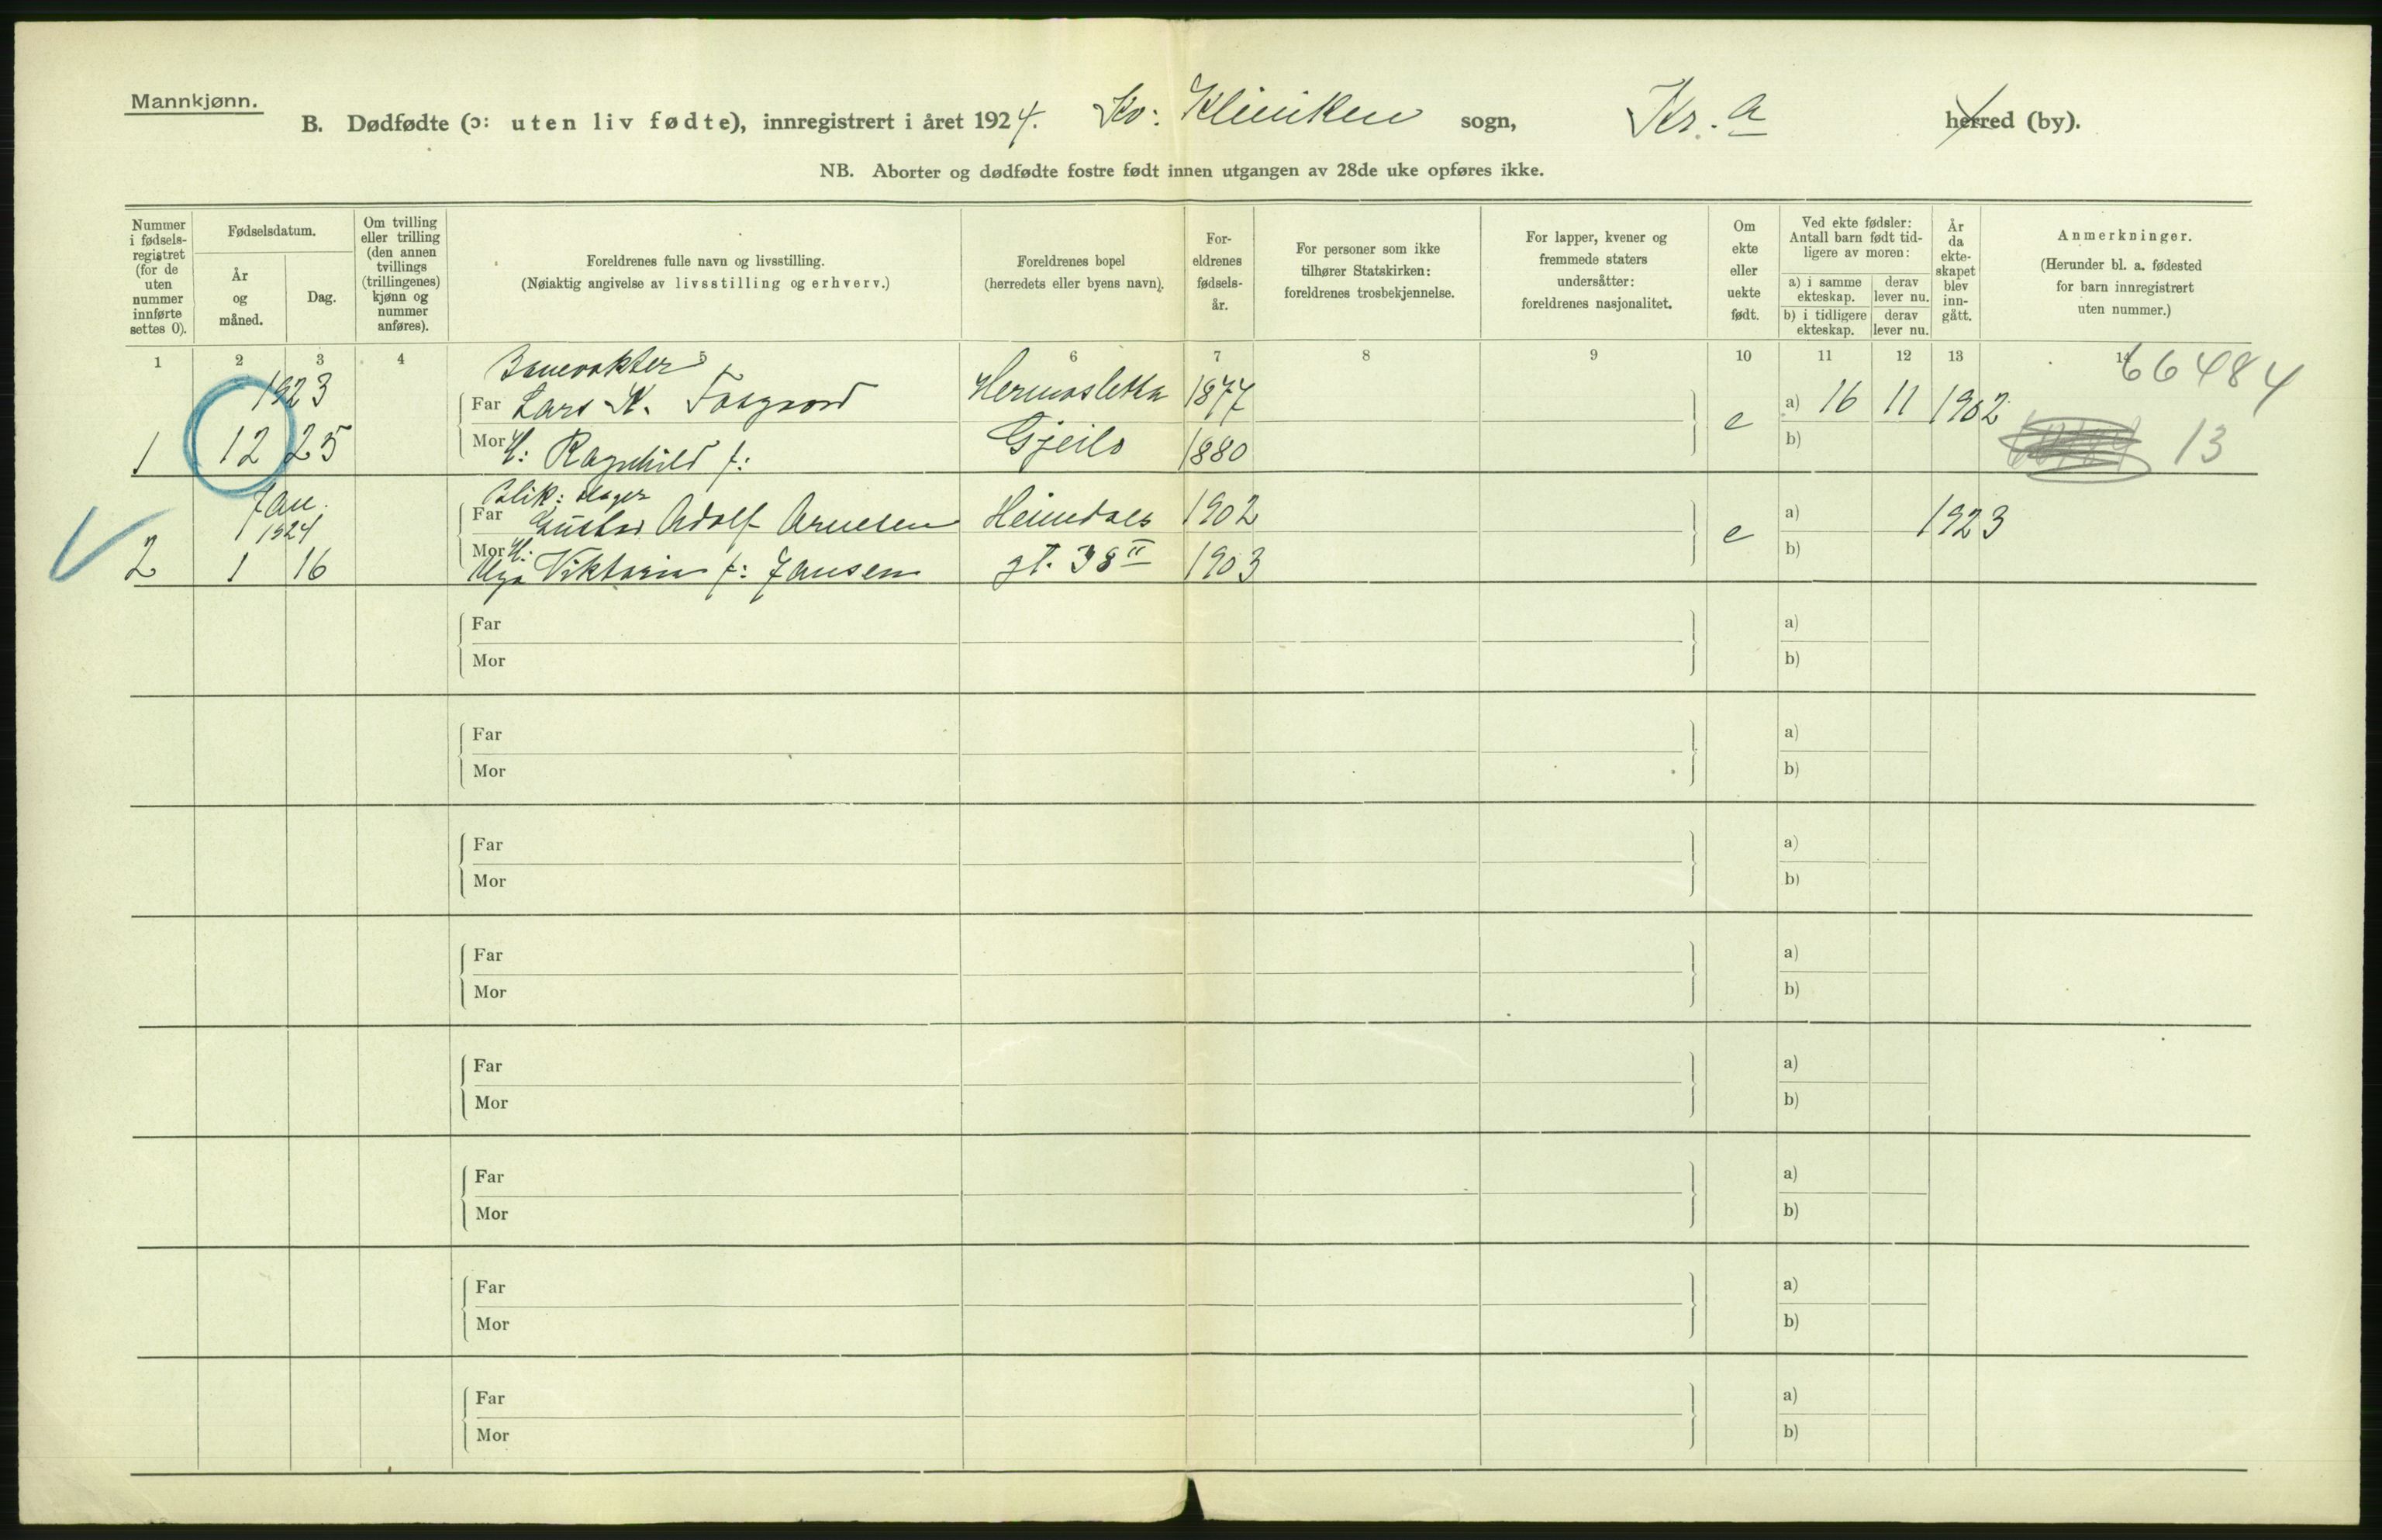 Mannkjønn.
B. Dødfødte (ɔ: uten liv fødte), innregistrert i året 1924. Kv: Kliniken sogn, Kr.a herred (by).
NB. Aborter og dødfødte fostre født innen utgangen av 28de uke opføres ikke.
Nummer i fødsels-registret (for de uten nummer innførte settes 0).
Fødselsdatum.
År og måned.
Dag.
Om tvilling eller trilling (den annen tvillings (trillingenes) kjønn og nummer anføres).
Foreldrenes fulle navn og livsstilling.
(Nøiaktig angivelse av livsstilling og erhverv.)
Foreldrenes bopel
(herredets eller byens navn).
For-eldrenes fødsels-år.
For personer som ikke tilhører Statskirken: foreldrenes trosbekjennelse.
For lapper, kvener og fremmede staters undersåtter: foreldrenes nasjonalitet.
Om ekte eller uekte født.
Ved ekte fødsler: Antall barn født tid-ligere av moren:
a) i samme ekteskap. derav lever nu.
b) i tidligere ekteskap. derav lever nu.
År da ekte-skapet blev inn-gått.
Anmerkninger.
(Herunder bl. a. fødested for barn innregistrert uten nummer.)
1 2 3 4 5 6 7 8 9 10 11 12 13 14
66484
1923 Banevokter
Far Lars K. Hermosletta 1877 e a) 16 11 1902
1 12 25 Mor H: Ragnhild f: Gjeilo 1880 b) 13
Jan. 1924
Far Gustav Adolf Arnesen Heimdals 1902 e a) 1923
2 1 16 Mor H: Olga Viktoria f: Jansen gt. 38 II 1903 b)
Far a)
Mor b)
Far a)
Mor b)
Far a)
Mor b)
Far a)
Mor b)
Far a)
Mor b)
Far a)
Mor b)
Far a)
Mor b)
Far a)
Mor b)